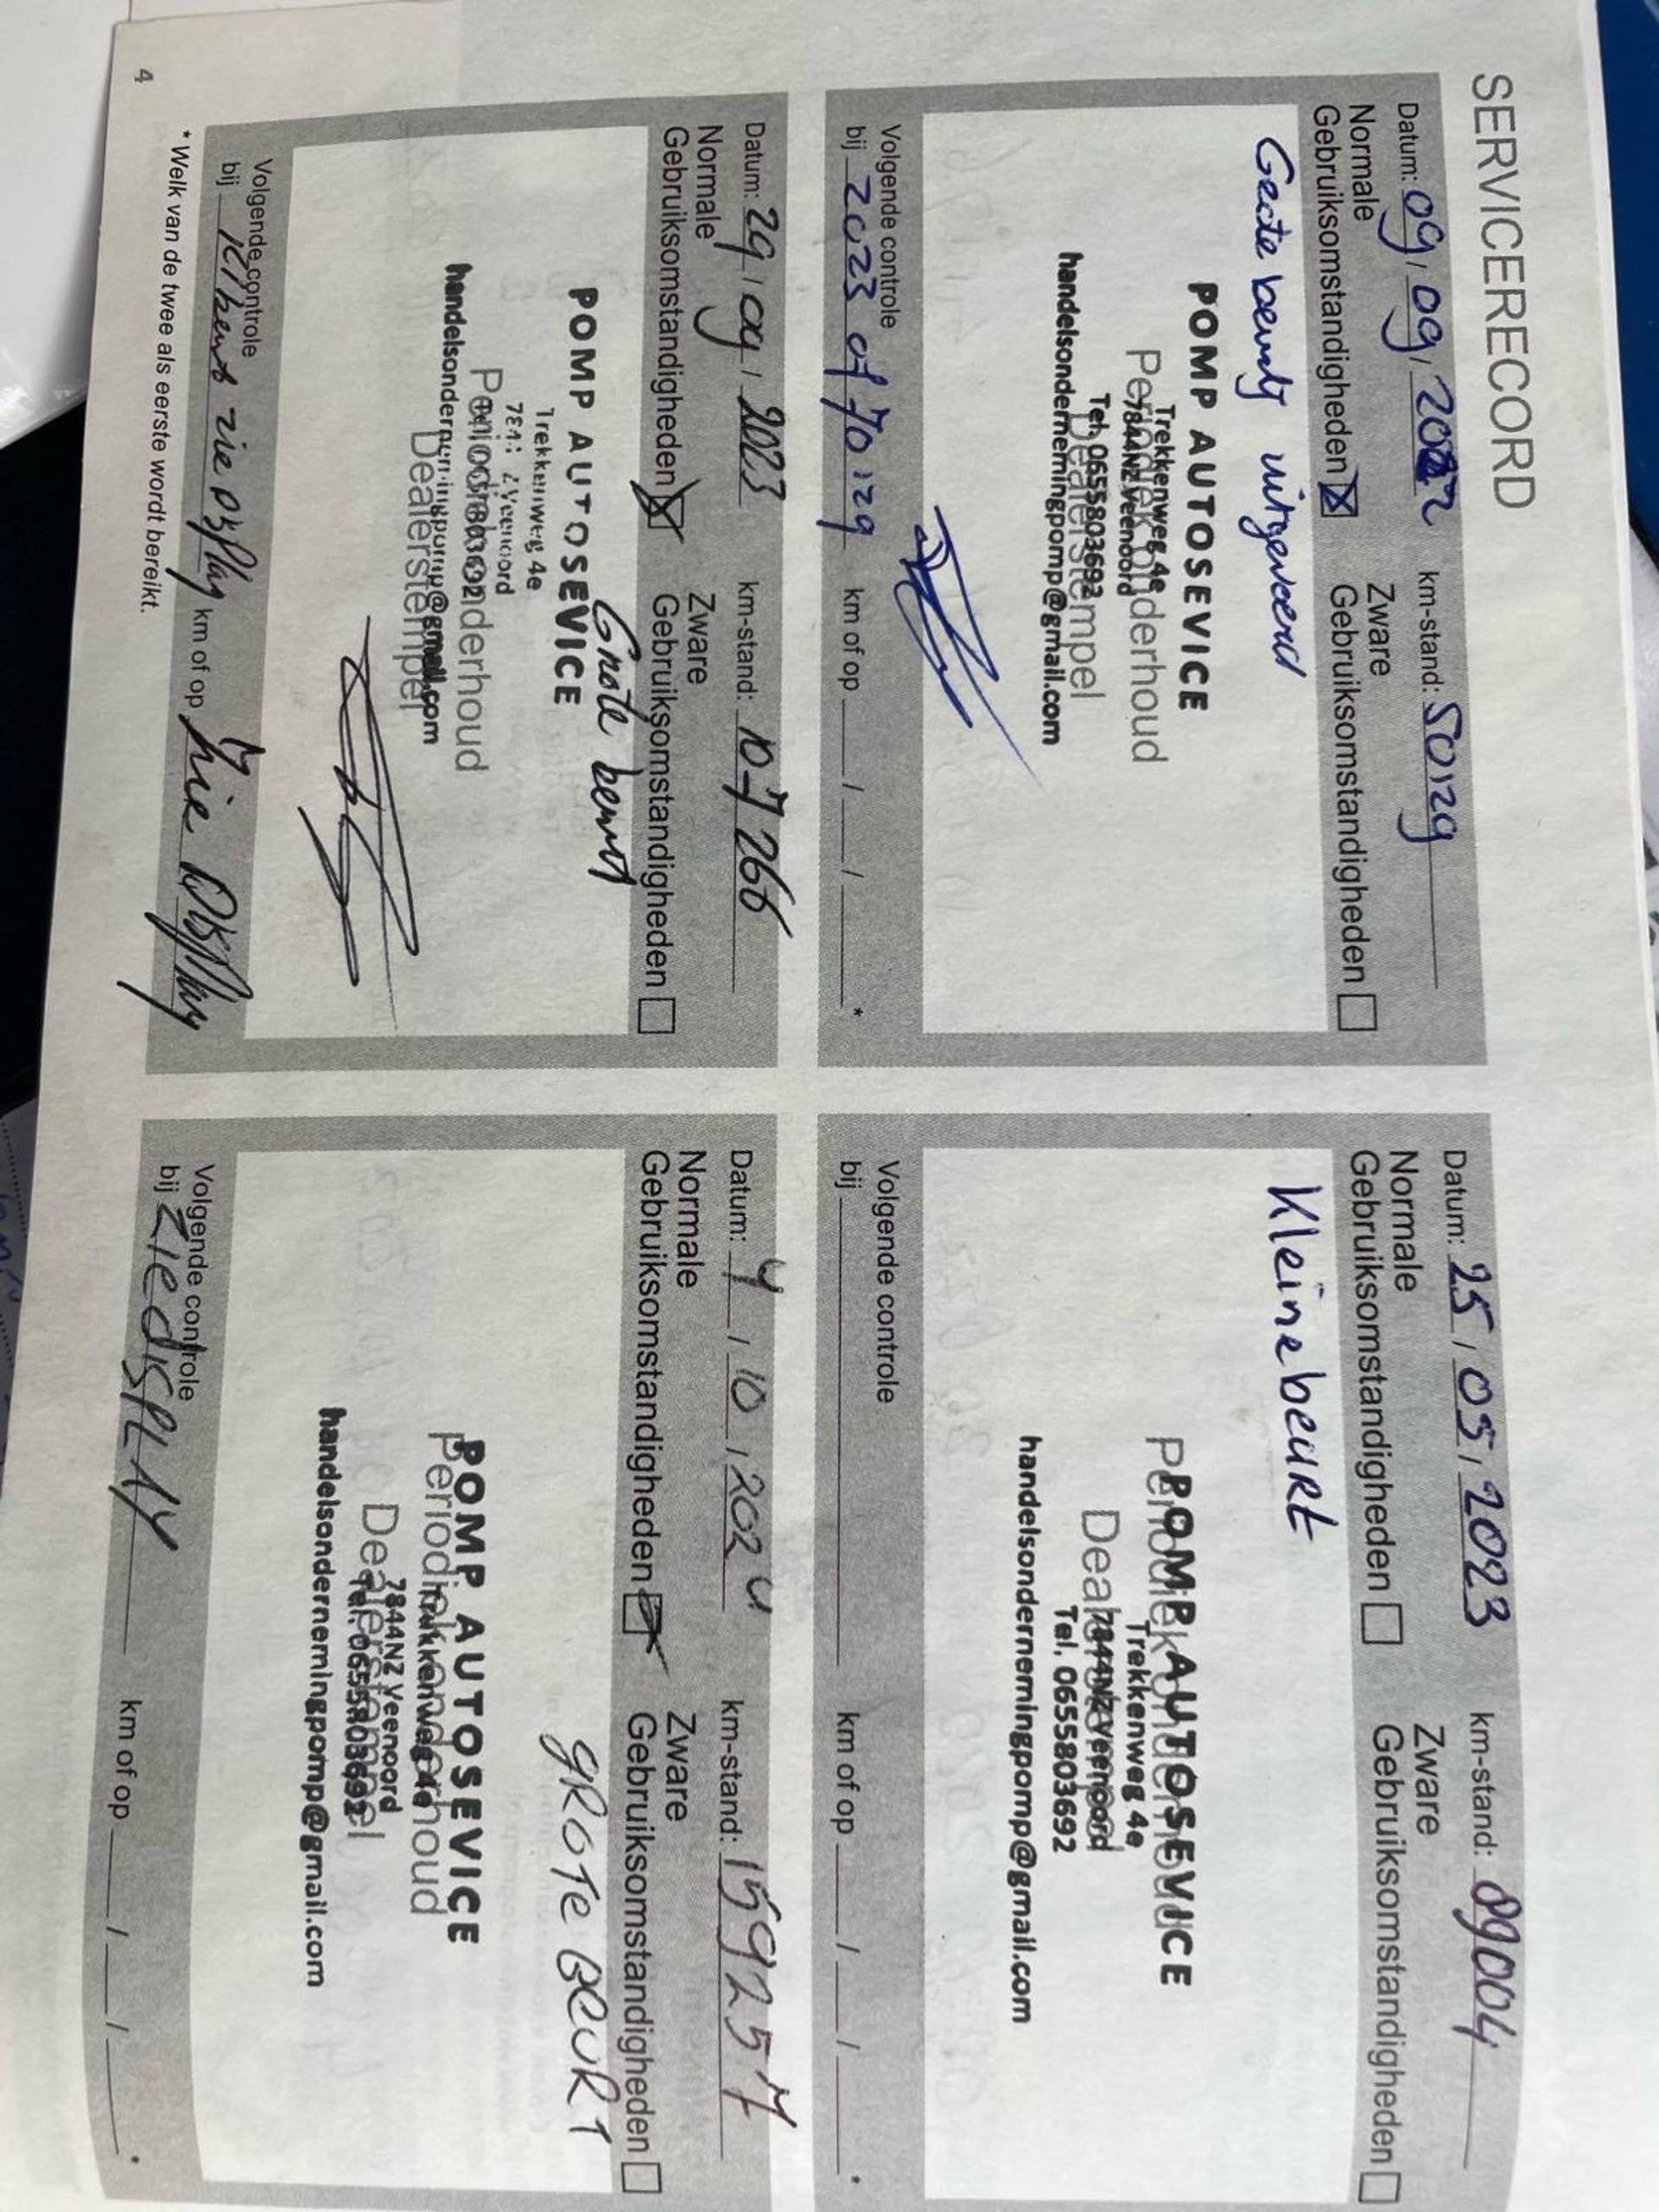 SERVICERECORD
Datum: 09 / 09 / 2022 km-stand: 50129
Normale Gebruiksomstandigheden ☒ Zware Gebruiksomstandigheden ☐
Grote beurt uitgevoerd
POMP AUTOSEVICE
Trekkenweg 4e
Periodiek onderhoud
7844NZ Veenoord
Tel. 0655803692
Dealerstempel
handelsondernemingpomp@gmail.com
Volgende controle
bij 2023 of 70129 km of op __ / __ / __ *
Datum: 25 / 05 / 2023 km-stand: 89004
Normale Gebruiksomstandigheden ☐ Zware Gebruiksomstandigheden ☐
Kleine beurt
POMP AUTOSEVICE
Periodiek onderhoud
Trekkenweg 4e
7844NZ Veenoord
Dealerstempel
Tel. 0655803692
handelsondernemingpomp@gmail.com
Volgende controle
bij ____ km of op __ / __ / __ *
Datum: 29 / 09 / 2023 km-stand: 107266
Normale Gebruiksomstandigheden ☒ Zware Gebruiksomstandigheden ☐
Grote beurt
POMP AUTOSEVICE
Trekkenweg 4e
Veenoord
Periodiek onderhoud
handelsondernemingpomp@gmail.com
Dealerstempel
Volgende controle
bij zie display km of op zie display
Datum: 4 / 10 / 2024 km-stand: 159257
Normale Gebruiksomstandigheden ☒ Zware Gebruiksomstandigheden ☐
GROTE BEURT
POMP AUTOSEVICE
Periodiek onderhoud
Trekkenweg 4e
7844NZ Veenoord
Dealerstempel
Tel. 0655803692
handelsondernemingpomp@gmail.com
Volgende controle
bij ZIE dISPLAY km of op __ / __ / __ *
* Welk van de twee als eerste wordt bereikt.
4